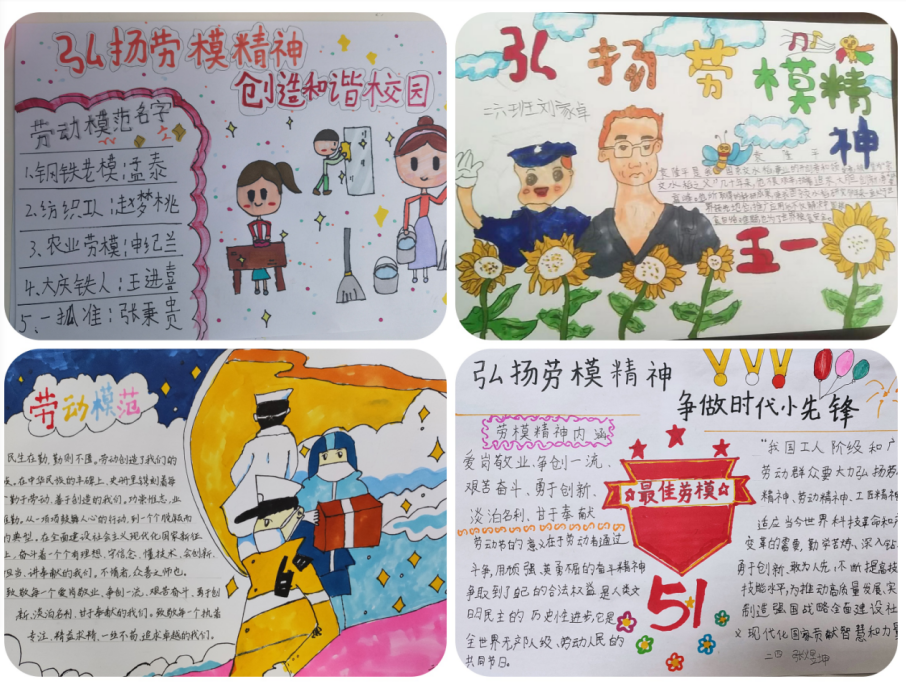 弘扬劳模精神
创造和谐校园
劳动模范名字
1.钢铁老模:孟泰
2.纺织工人:赵梦桃
3、农业劳模:申纪兰
4.大庆铁人:王进喜
5、一抓准:张秉贵
弘扬劳模精神
二六班刘家卓
袁隆平
五一
劳动模范
民生在勤,勤则不匮。劳动创造了我们的
在中华民族的丰碑上,史册里镌刻着每
勤于劳动、善于创造的我们。功崇惟志,业
惟勤。从一项项鼓舞人心的行动,到一个个脱颖而
的典型,在全面建设社会主义现代化国家新征
上,奋斗着一个个有理想、守信念、懂技术、会创新、
担当、讲奉献的我们。不惰者,众善之师也。
致敬每一个爱岗敬业、争创一流、艰苦奋斗、勇于创
新、淡泊名利、甘于奉献的我们。致敬每一个执着
专注、精益求精、一丝不苟、追求卓越的我们。
弘扬劳模精神
争做时代小先锋
劳模精神内涵
爱岗敬业、争创一流、
艰苦奋斗、勇于创新、
淡泊名利、甘于奉献
劳动节的意义在于劳动者通过
斗争,用顽强、英勇不屈的奋斗精神
争取到了自己的合法权益,是人类文
明民主的历史性进步,它是
全世界无产阶级、劳动人民的
共同节日。
最佳劳模
51
“我国工人阶级和广
劳动群众要大力弘扬劳
精神、劳动精神、工匠精神
适应当今世界科技革命和产
变革的需要,勤学苦练、深入钻
勇于创新、敢为人先,不断提高技
技能水平,为推动高质量发展、实
制造强国战略全面建设社
义现代化国家贡献智慧和力量
二四 张煜坤